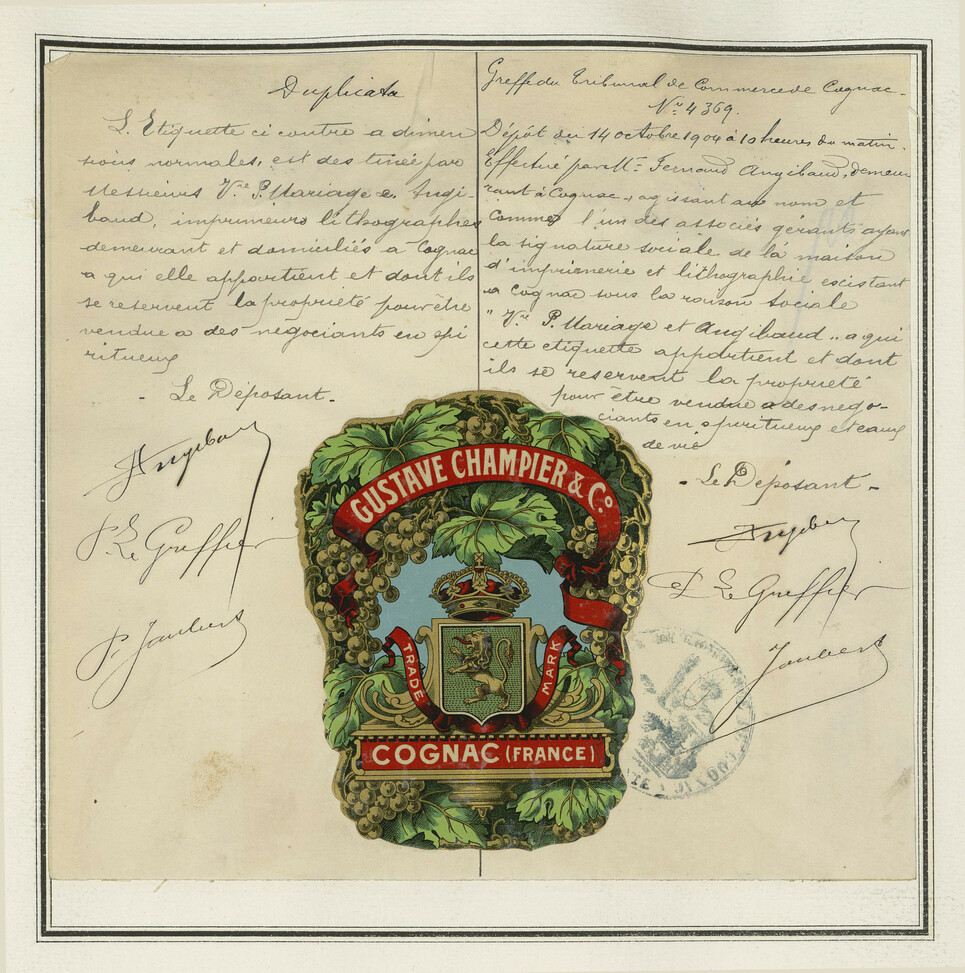 Duplicata
L'Etiquette ci contre a dimen
sions normales, est destinée par
Messieurs Vve P. Mariage & Angi-
baud, imprimeurs lithographes
demeurant et domiciliés à Cognac
a qui elle appartient et dont ils
se reservent la propriété pour être
vendue a des négociants en spi
ritueux
- Le Déposant -
Angibaud
P. Le Greffier
P. Jaubert
Greffe du Tribunal de Commerce de Cognac.
No 4369.
Dépôt du 14 octobre 1904 à 10 heures du matin.
Effectué par Mr Fernand Angibaud, demeu
rant à Cognac, agissant au nom et
comme l'un des associés gérants ayant
la signature sociale de la maison
d'imprimerie et lithographie existant
a Cognac sous la raison sociale
" Vve P. Mariage et Angibaud " a qui
cette etiquette appartient et dont
ils se reservent la propriété
pour être vendue a des négo-
ciants en spiritueux et eaux
de vie
- Le Déposant -
Angibaud
P. Le Greffier
Jaubert
GUSTAVE CHAMPIER & Co.
TRADE MARK
COGNAC (FRANCE)